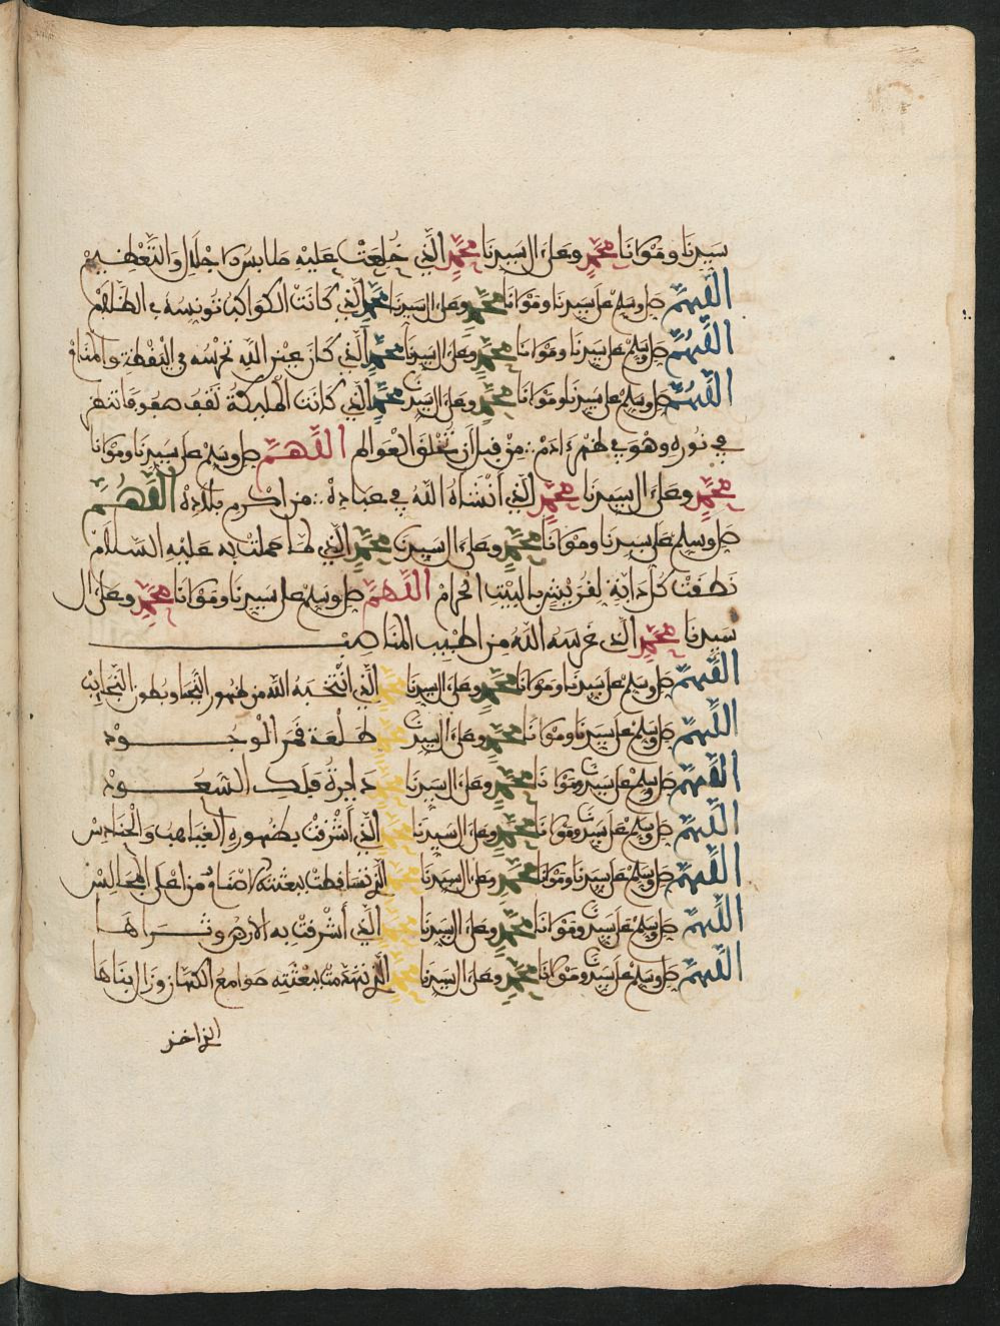 سيدنا ومولانا محمد وعلى ال سيدنا محمد الذي خلعت عليه ملابس الاجلال والتعظيم
اللهم صل وسلم على سيدنا ومولانا محمد وعلى ال سيدنا محمد الذي كانت الكواكب تونسه في الظلام
اللهم صل وسلم على سيدنا ومولانا محمد وعلى ال سيدنا محمد الذي كان عين الله تحرسه في اليقظة والمنام
اللهم صل وسلم على سيدنا ومولانا محمد وعلى ال سيدنا محمد الذي كانت الملايكة تقف صفوفا تنظر
في نوره وهو في ظهر ءادم من قبل ان تخلق العوالم اللهم صل وسلم على سيدنا ومولانا
محمد وعلى ال سيدنا محمد الذي انشاه الله في عباده من اكرم بلاده اللهم
صل وسلم على سيدنا ومولانا محمد وعلى ال سيدنا محمد الذي لما حملت به عليه السلام
نطقت كل دابة لقريش بالبيت الحرام اللهم صل وسلم على سيدنا ومولانا محمد وعلى ال
سيدنا محمد الذي غرسه الله من اطيب المناصب
اللهم صل وسلم على سيدنا ومولانا محمد وعلى ال سيدنا محمد الذي انتخبه الله من ظهور النجبا وبطون النجايب
اللهم صل وسلم على سيدنا ومولانا محمد وعلى ال سيدنا محمد طلعة قمر الوجود
اللهم صل وسلم على سيدنا ومولانا محمد وعلى ال سيدنا محمد دايرة فلك السعود
اللهم صل وسلم على سيدنا ومولانا محمد وعلى ال سيدنا محمد الذي أشرقت بظهوره الغياهب والحنادس
اللهم صل وسلم على سيدنا ومولانا محمد وعلى ال سيدنا محمد الذي تساقطت ببعثته الاصنام من اعلى المجالس
اللهم صل وسلم على سيدنا ومولانا محمد وعلى ال سيدنا محمد الذي أشرقت به الارض وثراها
اللهم صل وسلم على سيدنا ومولانا محمد وعلى ال سيدنا محمد الذي تهدمت ببعثته صوامع الكفار وزال بناها